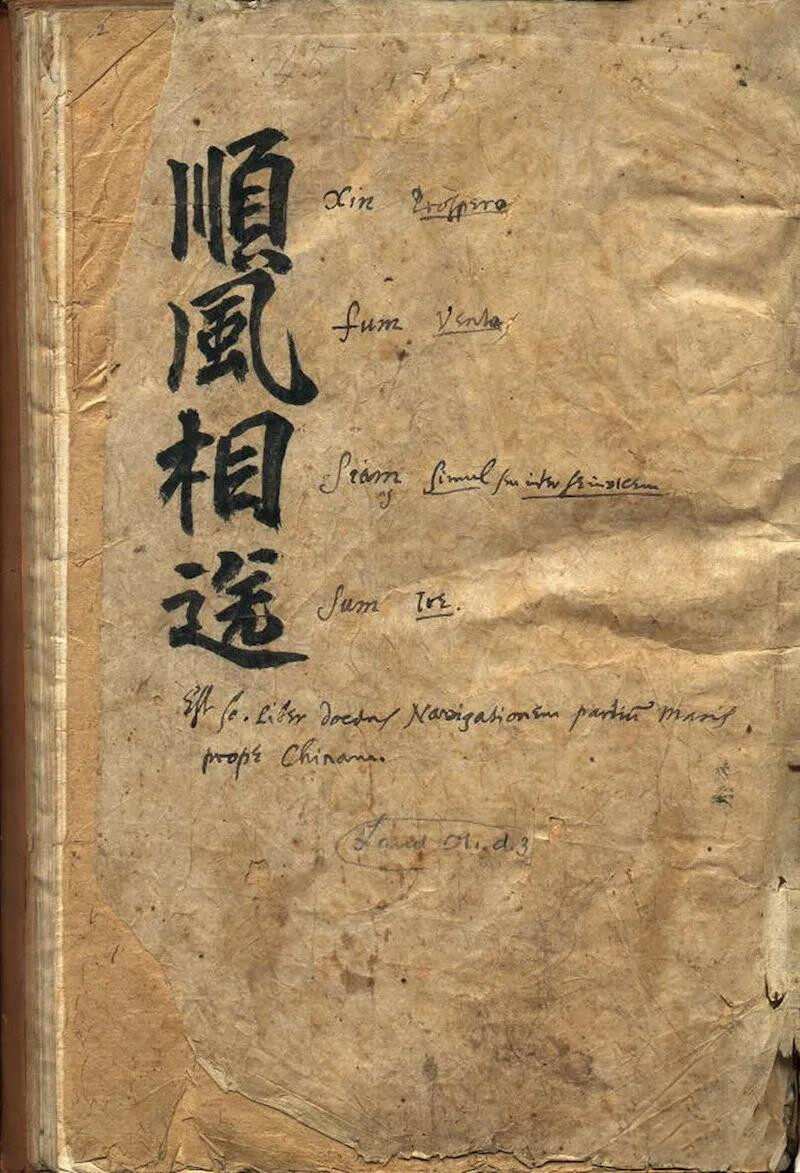 順風相送
Xin Prospero
fum Vento
Siam Simul seu inter se invicem
Sum Ire.
Est sc. Liber docens Navigationem partiū Maris
prope Chinam.
Laud Or. d. 3